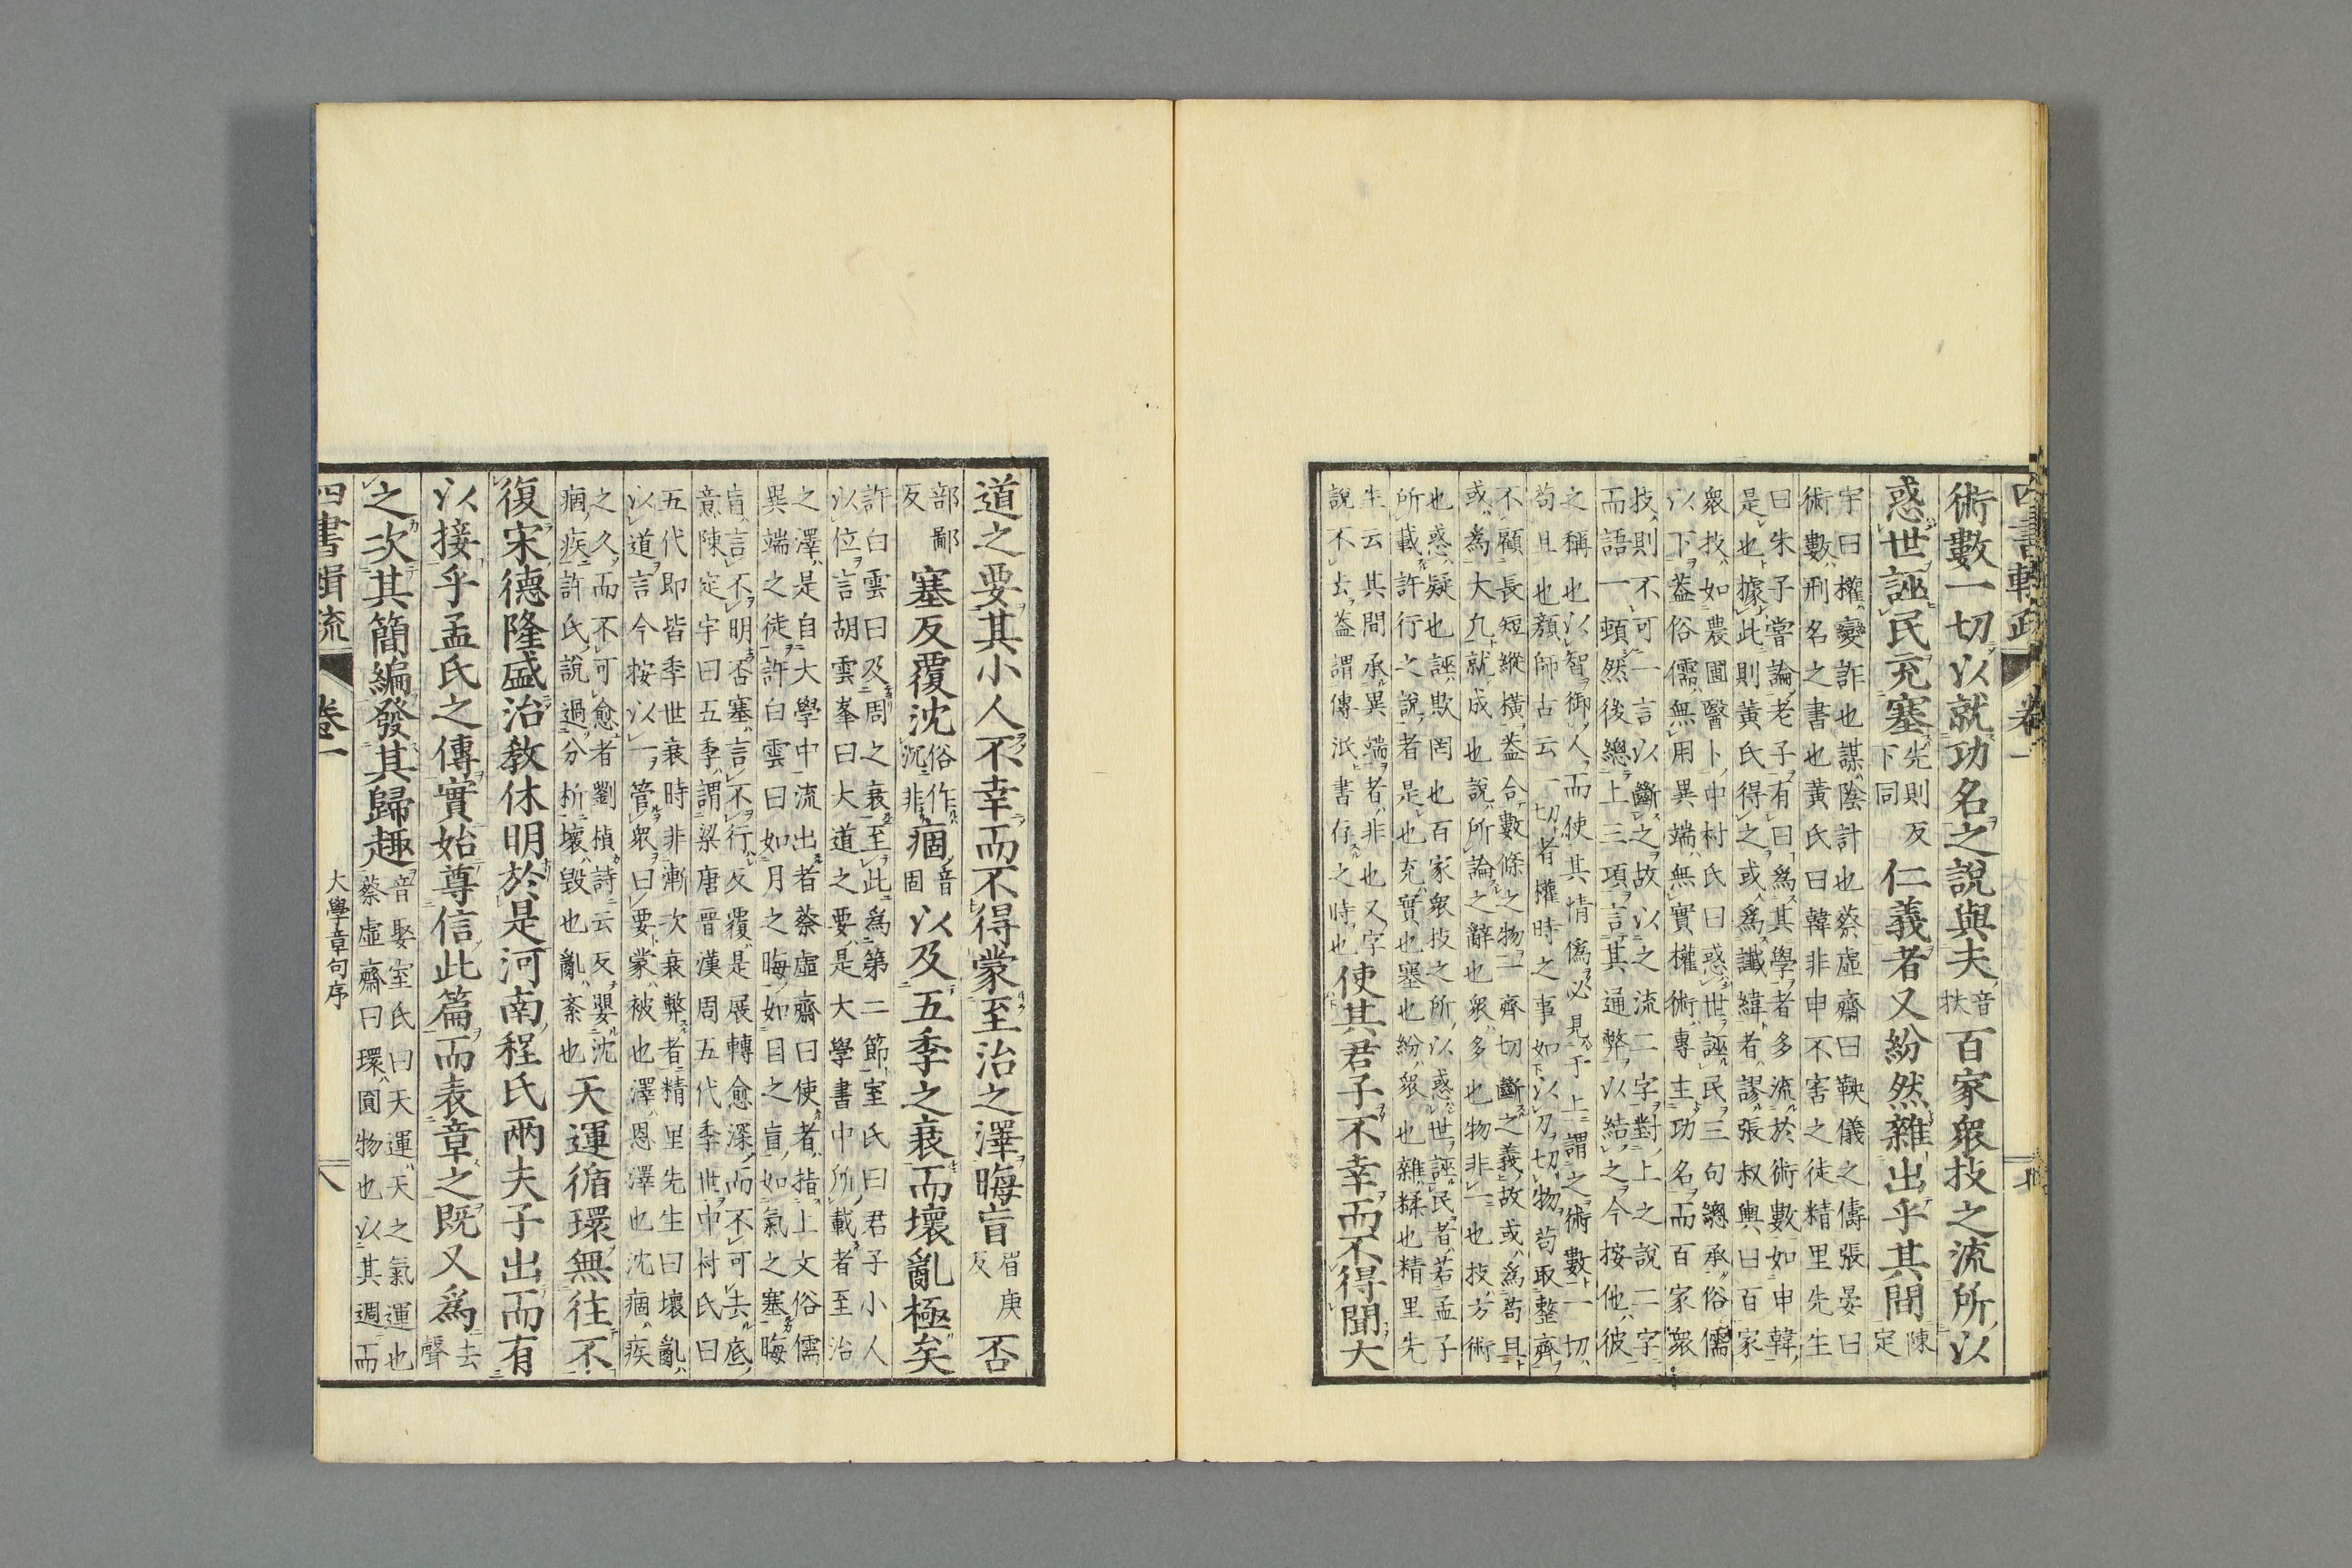 術數一切以就功名之說與夫音扶百家衆技之流所以
惑世誣民充塞先則反下同仁義者又紛然雜出乎其間陳定
宇曰權變詐也謀陰計也蔡虛齋曰鞅儀之儔張晏曰
術數刑名之書也黃氏曰韓非申不害之徒精里先生
曰朱子嘗論老子有曰爲其學者多流於術數如申韓
是也據此則黃氏得之或爲讖緯者謬張叔輿曰百家
衆技如農圃醫卜中村氏曰惑世誣民三句總承俗儒
以下蓋俗儒無用異端無實權術專主功名而百家衆
技則不可一言以斷之故以之流二字對上之說二字
而語一頓然後總上三項言其通弊以結之今按他彼
之稱也以智御人而使其情僞必見于上謂之術數一切
苟且也顏師古云一切者權時之事如以刀切物苟取整齊
不顧長短縱橫蓋合數條之物一齊切斷之義故或爲苟且
或爲大凡就成也說所論之辭也衆多也物非一也技方術
也惑疑也誣欺罔也百家衆技之所以惑世誣民者若孟子
所載許行之說者是也充實也塞也紛衆也雜糅也精里先
生云其間承異端者非也又字
說不去蓋謂傳泯書存之時也使其君子不幸而不得聞大
道之要其小人不幸而不得蒙至治之澤晦盲眉庚反否
部鄙反塞反覆沈俗作沉非痼音固以及五季之衰而壞亂極矣
許白雲曰及周之衰至此爲第二節室氏曰君子小人
以位言胡雲峯曰大道之要是大學書中所載者至治
之澤是自大學中流出者蔡虛齋曰使者指上文俗儒
異端之徒許白雲曰如月之晦如目之盲如氣之塞晦
盲言不明否塞言不行反覆是展轉愈深而不可去底
意陳定宇曰五季謂梁唐晉漢周五代季世中村氏曰
五代即皆季世衰時非漸次衰弊者精里先生曰壞亂
以道言今按以一管衆曰要蒙被也澤恩澤也沈痼疾
之久而不可愈者劉楨詩云反嬰沈
痼疾許氏說過分析壞毀也亂紊也天運循環無往不
復宋德隆盛治教休明於是河南程氏兩夫子出而有
以接乎孟氏之傳實始尊信此篇而表章之既又爲去聲
之次其簡編發其歸趣音娶室氏曰天運天之氣運也
蔡虛齋曰環圓物也以其週而
四書輯疏 卷一 大學章句序 八